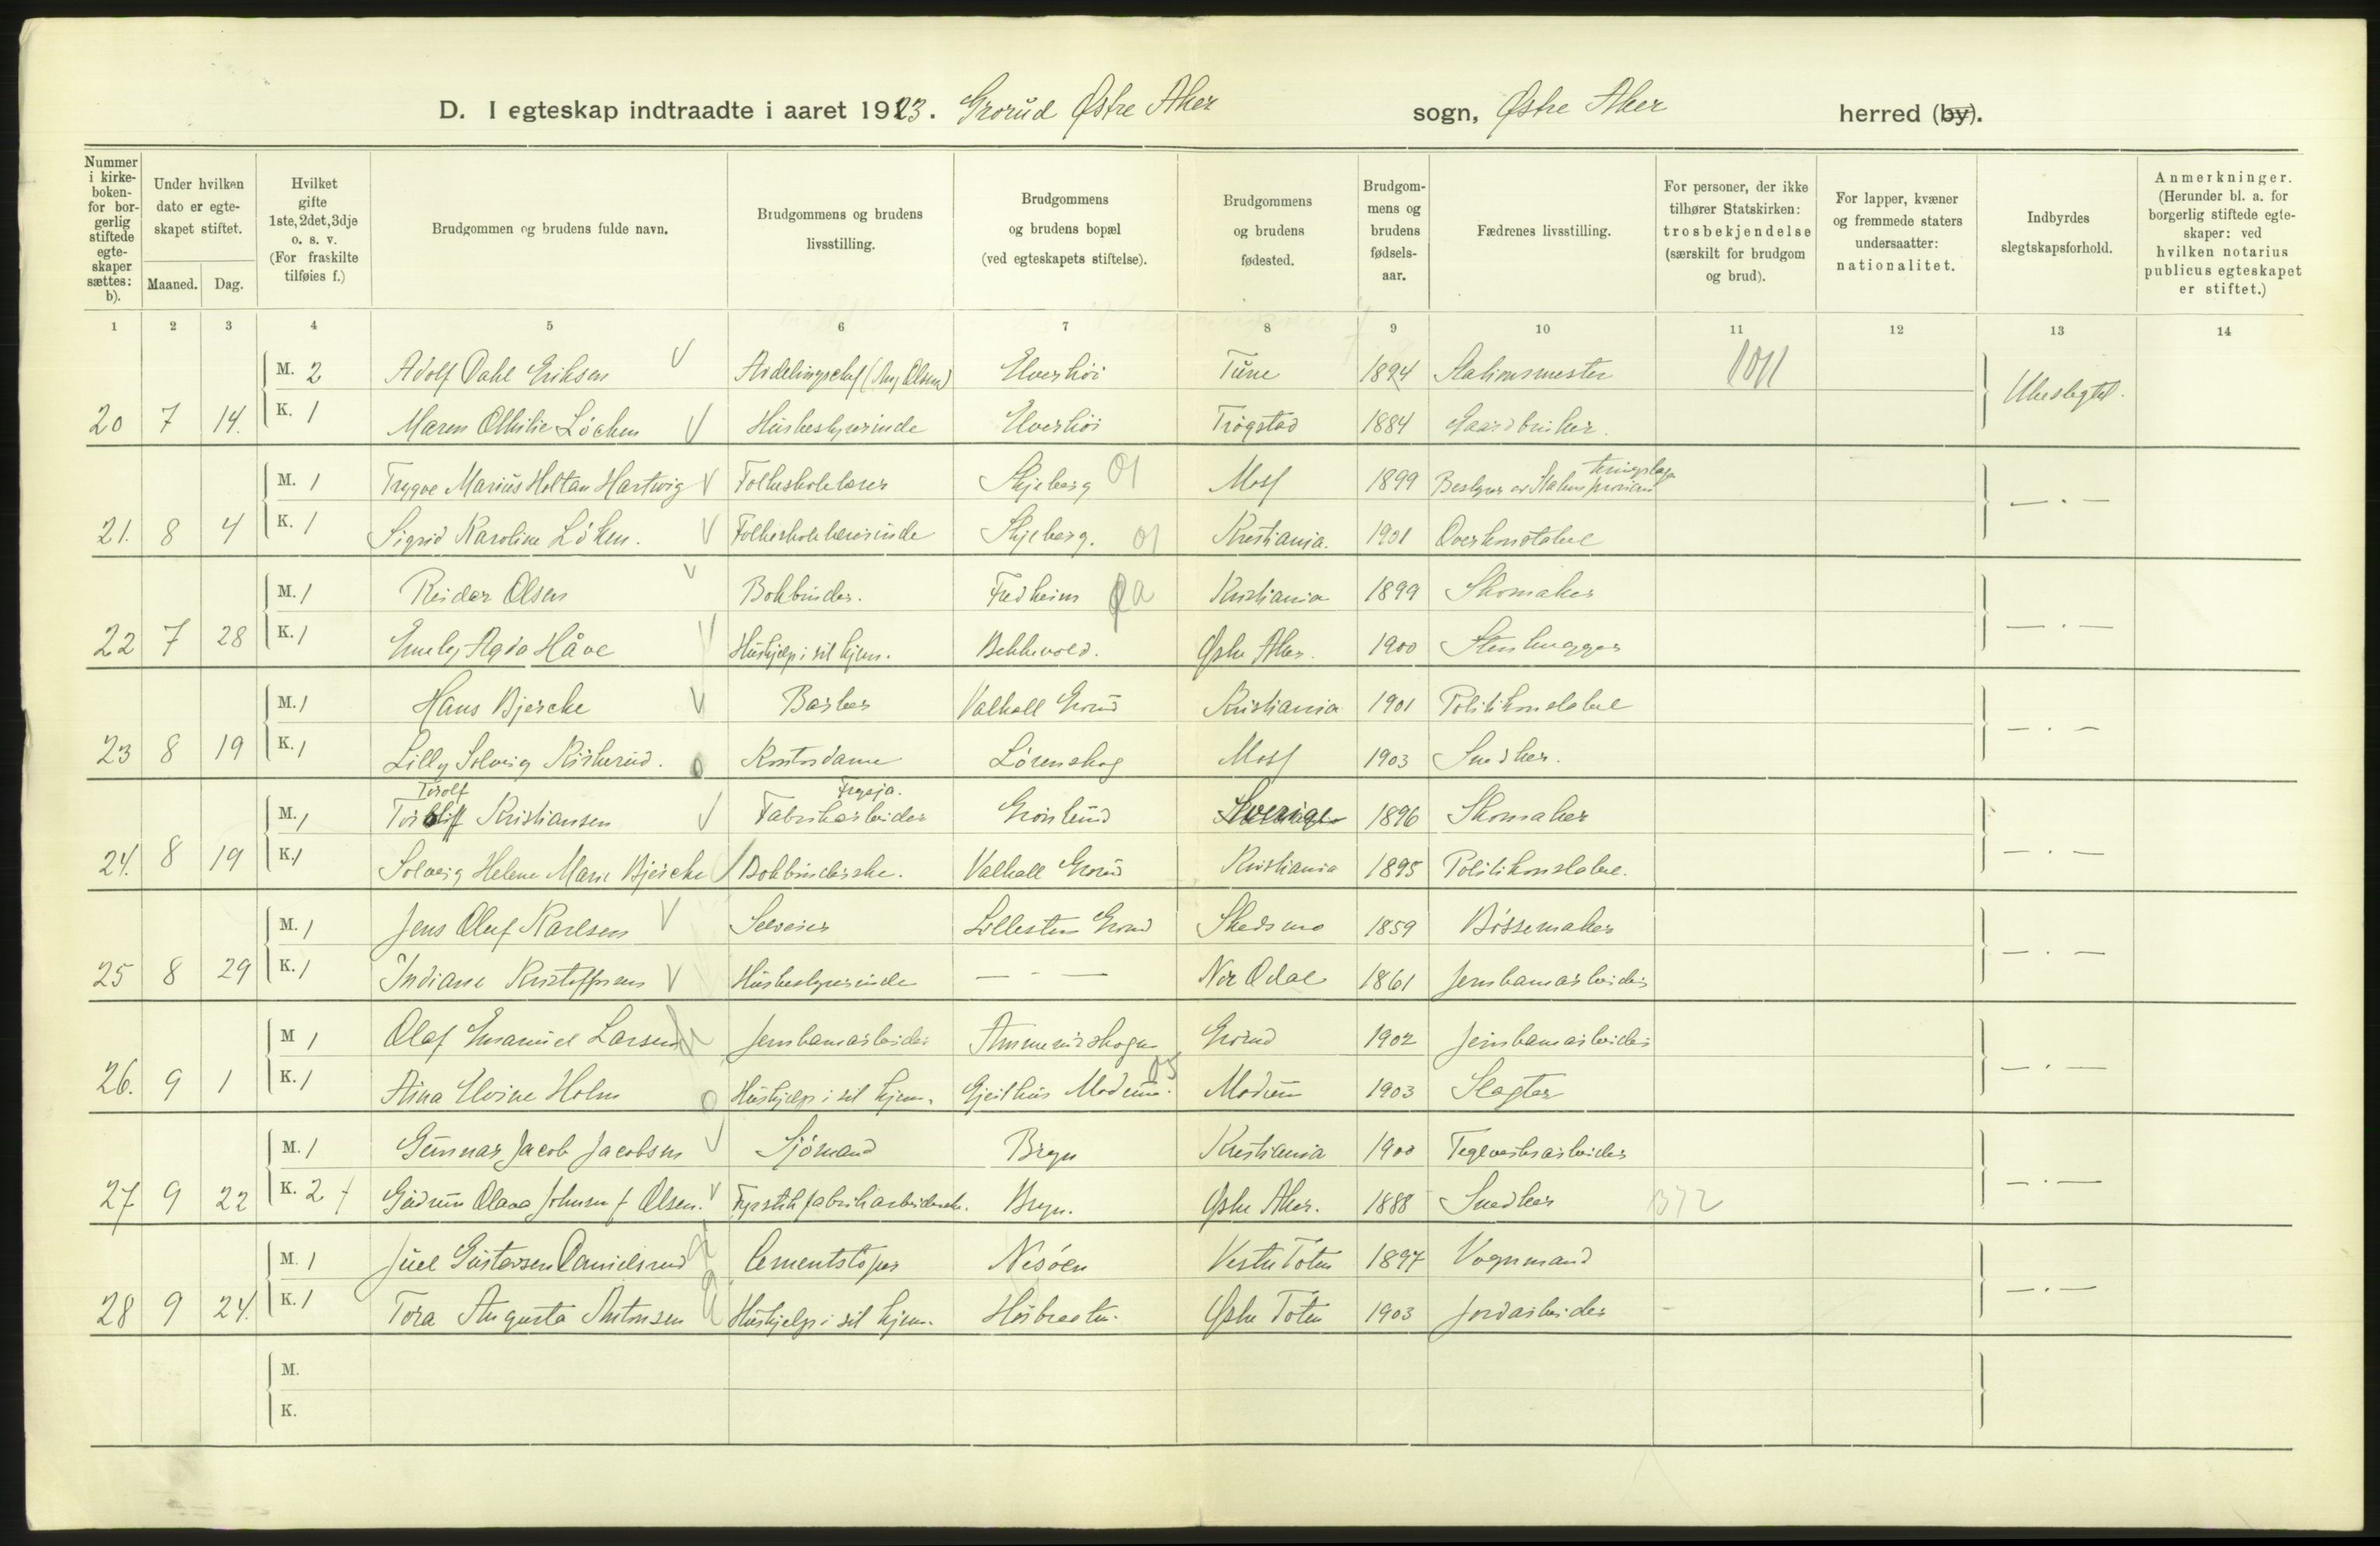 D. I egteskap indtraadte i aaret 1923. Grorud Østre Aker sogn, Østre Aker herred (by).
Nummer i kirkeboken- for borgerlig stiftede egteskaper sættes: b).
Under hvilken dato er egteskapet stiftet.
Maaned. Dag.
Hvilket gifte 1ste, 2det, 3dje o. s. v. (For fraskilte tilføies f.)
Brudgommen og brudens fulde navn.
Brudgommens og brudens livsstilling.
Brudgommens og brudens bopæl (ved egteskapets stiftelse).
Brudgommens og brudens fødested.
Brudgommens og brudens fødselsaar.
Fædrenes livsstilling.
For personer, der ikke tilhører Statskirken: trosbekjendelse (særskilt for brudgom og brud).
For lapper, kvæner og fremmede staters undersaatter: nationalitet.
Indbyrdes slegtskapsforhold.
Anmerkninger. (Herunder bl. a. for borgerlig stiftede egteskaper: ved hvilken notarius publicus egteskapet er stiftet.)
1 2 3 4 5 6 7 8 9 10 11 12 13 14
M. 2 Adolf Dahl Eriksen Avdelingschef (Aug Olsen) Elverhöi Tune 1894 Stationsmester
20 7 14. K. 1 Maren Othilie Löchen Husbestyrerinde Elverhöi Trögstad 1884 Gaardbruker. Ubeslegtet.
M. 1 Trygve Marius Holtan Hartwig Folkeskolelærer Skjeberg Moss 1899 Bestyrer av Statens
21. 8 4 K. 1 Sigrid Karoline Löken. Folkeskolelærerinde Skjeberg. Kristiania. 1901 Overkonstabel — . —
M. 1 Reidar Olsen Bokbinder. Fredheim Kristiania 1899 Skomaker
22 7 28 K. 1 Emely Agda Håve Hushjelp i sit hjem. Bekkevold. Østre Aker. 1900 Stenhugger — . —
M. 1 Hans Bjercke Barber Valhall Grorud Kristiania 1901 Politikonstabel
23 8 19 K. 1 Lilly Solveig Riskerud. Kontordame Lörenskog Moss 1903 Snedker. — . —
Torolf Frysja.
M. 1 Kristiansen Fabrikarbeider Grorud Sverige 1896 Skomaker
24. 8 19 K. 1 Solveig Helene Marie Bjercke Bokbinderske. Valhall Grorud Kristiania 1895 Politikonstabel. — . —
M. 1 Jens Oluf Karlsen Selveier Lillesten Grorud Skedsmo 1859 Bössemaker
25 8 29 K. 1 Indiane Kristoffersen Husbestyrerinde — - — Nor Odal 1861 Jernbanearbeider — . —
M 1 Olaf Emanuel Larsen Jernbanearbeider Ammerudskogen Grorud 1902 Jernbanearbeider
26. 9 1 K. 1 Aina Elvine Holm Hushjelp i sit hjem. Gjeithus Modum. Modum 1903 Slagter — . —
M. 1 Gunnar Jacob Jacobsen Sjömand Bryn Kristiania 1900 Teglverksarbeider
27 9 22 K. 2 f Gudrun Olava Johnsen f Olsen. Fyrstikfabrikarbeiderske. Bryn. Østre Aker. 1888 Snedker — . —
M. 1 Juel Gustavsen Danielsrud Cementstöper Nesöen Vestre Toten 1897 Vognmand
28 9 24. K. 1 Tora Augusta Antonsen Hushjelp i sit hjem. Höibraaten. Østre Toten 1903 Jordarbeider — . —
M.
K.